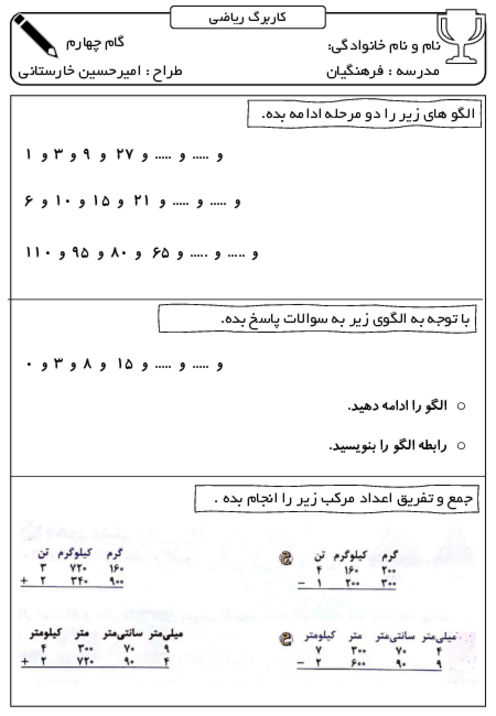 کاربرگ ریاضی
نام و نام خانوادگی:
گام چهارم
مدرسه : فرهنگیان
طراح : امیرحسین خارستانی
الگو های زیر را دو مرحله ادامه بده.
۱ و ۳ و ۹ و ۲۷ و ..... و ..... و
۶ و ۱۰ و ۱۵ و ۲۱ و ..... و ..... و
۱۱۰ و ۹۵ و ۸۰ و ۶۵ و ..... و ..... و
با توجه به الگوی زیر به سوالات پاسخ بده.
۰ و ۳ و ۸ و ۱۵ و ..... و ..... و
○ الگو را ادامه دهید.
○ رابطه الگو را بنویسید.
جمع و تفریق اعداد مرکب زیر را انجام بده .
تن کیلوگرم گرم
۳ ۷۲۰ ۱۶۰
+ ۲ ۳۴۰ ۹۰۰
ج تن کیلوگرم گرم
۴ ۱۶۰ ۲۰۰
− ۱ ۲۰۰ ۳۰۰
کیلومتر متر سانتی‌متر میلی‌متر
۴ ۳۰۰ ۷۰ ۹
+ ۲ ۷۲۰ ۹۰ ۴
ج کیلومتر متر سانتی‌متر میلی‌متر
۷ ۳۰۰ ۷۰ ۴
− ۲ ۶۰۰ ۹۰ ۹